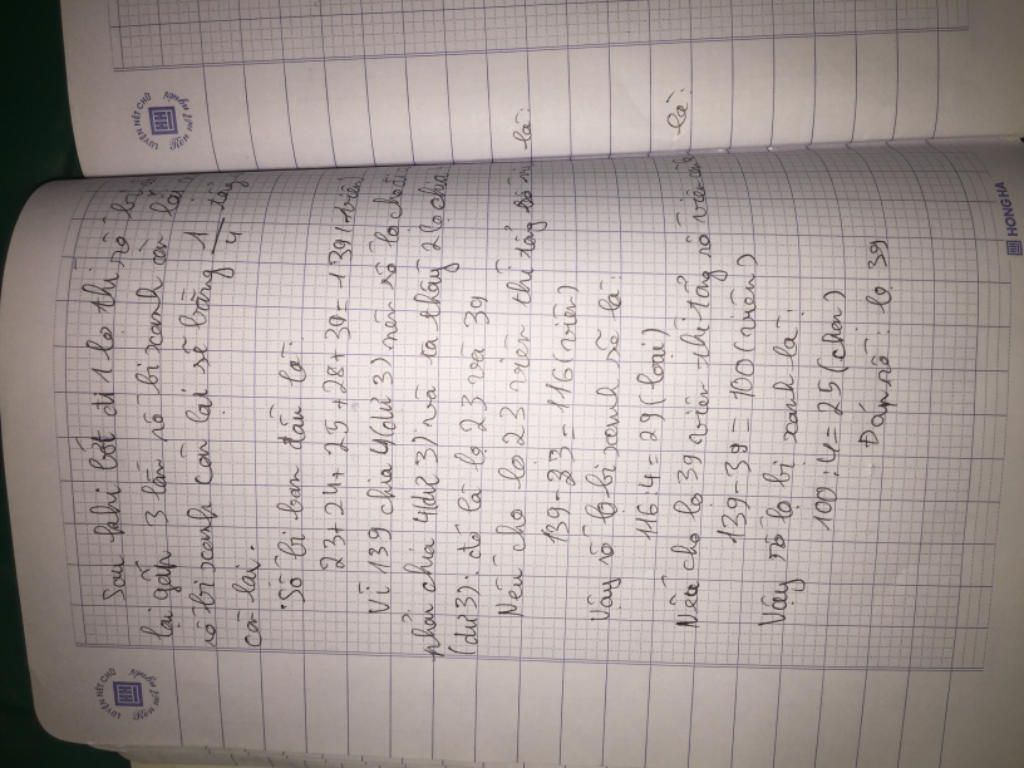 Sau khi bớt đi 1 lọ thì số bi
lại gấp 3 lần số bi xanh còn lại
số bi xanh còn lại sẽ bằng 1/4 tổng
còn lại.
Số bi ban đầu là:
23+24+25+28+39=139(viên)
Vì 139 chia 4(dư 3) nên số lọ cho đi
phải chia 4(dư 3) và ta thấy 2 lọ chia
(dư3). đó là lọ 23 và 39
Nếu cho lọ 23 viên thì tổng số là:
139-23=116(viên)
Vậy số bi xanh sẽ là:
116:4=29(loại)
Nếu cho lọ 39 viên thì tổng số viên là:
139-39=100(viên)
Vậy số lọ bi xanh là:
100:4=25(chọn)
Đáp số: lọ 39
LUYỆN NÉT CHỮ
LUYỆN NÉT CHỮ
HH
HH
HONG HA